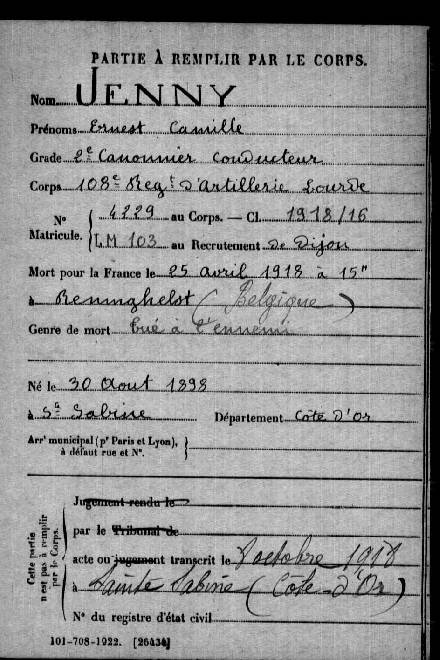 PARTIE À REMPLIR PAR LE CORPS.
Nom JENNY
Prénoms Ernest Camille
Grade 2e Canonnier conducteur
Corps 108e Regt D'Artillerie Lourde
N° Matricule. { 4229 au Corps. — Cl. 1918/16
LM 103 au Recrutement de Dijon
Mort pour la France le 25 avril 1918 à 15"
à Reninghelst (Belgique)
Genre de mort tué à l'ennemi
Né le 30 Aout 1898
à Ste Sabine Département Côte D'Or
Arrt municipal (pr Paris et Lyon), }
à défaut rue et N°.
Cette partie n'est pas à remplir par le Corps.
Jugement rendu le
par le Tribunal de
acte ou jugement transcrit le 8 octobre 1918
à Sainte Sabine (Côte-d'Or)
N° du registre d'état civil
101-708-1922. [26434]